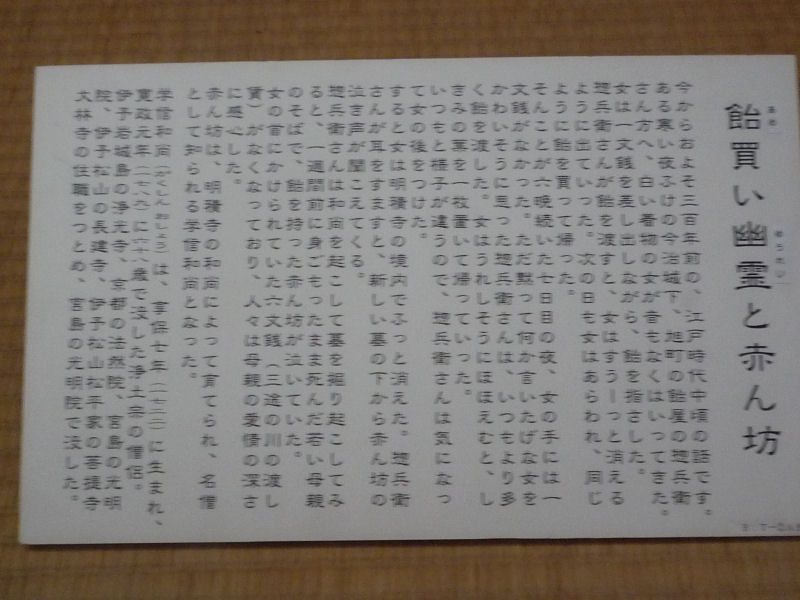 飴買い幽霊と赤ん坊
あめ
ゆうれい
今からおよそ三百年前の、江戸時代中頃の話です。
ある寒い夜ふけの今治城下、旭町の飴屋の惣兵衛
さん方へ、白い着物の女が音もなくはいってきた。
女は一文銭を差し出しながら、飴を指さした。
惣兵衛さんが飴を渡すと、女はすうーっと消える
ように出ていった。次の日も女はあらわれ、同じ
ように飴を買って帰った。
そんことが六晩続いた七日目の夜、女の手には一
文銭がなかった。ただ黙って何か言いたげな女を
かわいそうに思った惣兵衛さんは、いつもより多
く飴を渡した。女はうれしそうにほほえむと、し
きみの葉を一枚置いて帰っていった。
いつもと様子が違うので、惣兵衛さんは気になっ
て女の後をつけた。
すると女は明積寺の境内でふっと消えた。惣兵衛
さんが耳をすますと、新しい墓の下から赤ん坊の
泣き声が聞こえてくる。
惣兵衛さんは和尚を起こして墓を掘り起こしてみ
ると、一週間前に身ごもったまま死んだ若い母親
のそばで、飴を持った赤ん坊が泣いていた。
女の首にかけられていた六文銭（三途の川の渡し
賃）がなくなっており、人々は母親の愛情の深さ
に感心した。
赤ん坊は、明積寺の和尚によって育てられ、名僧
として知られる学信和尚となった。
学信和尚（がくしんおしょう）は、享保七年（一七二二）に生まれ、
寛政元年（一七八九）に六八歳で没した浄土宗の僧侶。
伊予岩城島の浄光寺、京都の法然院、宮島の光明
院、伊予松山の長建寺、伊予松山松平家の菩提寺
大林寺の住職をつとめ、宮島の光明院で没した。